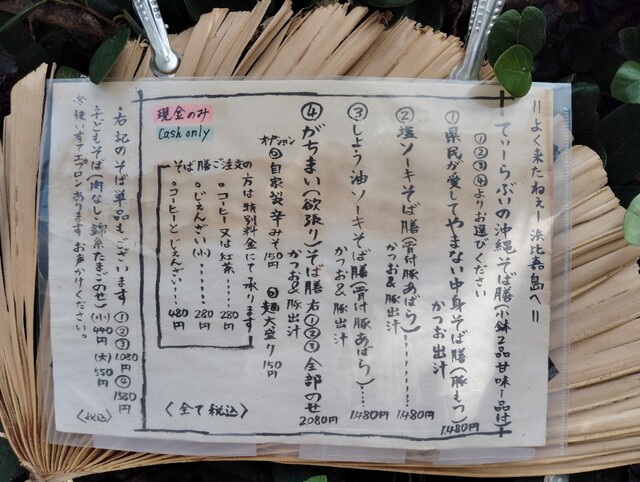 ＝よく来たねぇー浜比嘉島へ＝
てぃーらぶいの沖縄そば膳(小鉢2品甘味1品付)
①②③④よりお選びください
①県民が愛してやまない中身そば膳(豚もつ)
かつお出汁
1.480円
②塩ソーキそば膳(骨付豚あばら)
かつお&豚出汁
1.480円
③しょう油ソーキそば膳(骨付豚あばら)
かつお&豚出汁
1.480円
④がちまい(欲張り)そば膳右①②③全部のせ
かつお&豚出汁
2080円
オプション
自家製辛みそ150円
麺大盛り150円
現金のみ
Cash only
そば膳ご注文の
方は特別料金にて承ります
。コーヒー又は紅茶・・・280円
。じぇんざい(小)・・・・280円
。コーヒーとじぇんざい・・・480円
〈全て税込〉
・右記のそば単品もございます①②③1.080円④1580円
・子どもそば(肉なし・錦糸たまごのせ)(小)440円(大)550円
※使いすてエプロンあります。お声かけください。
〈税込〉